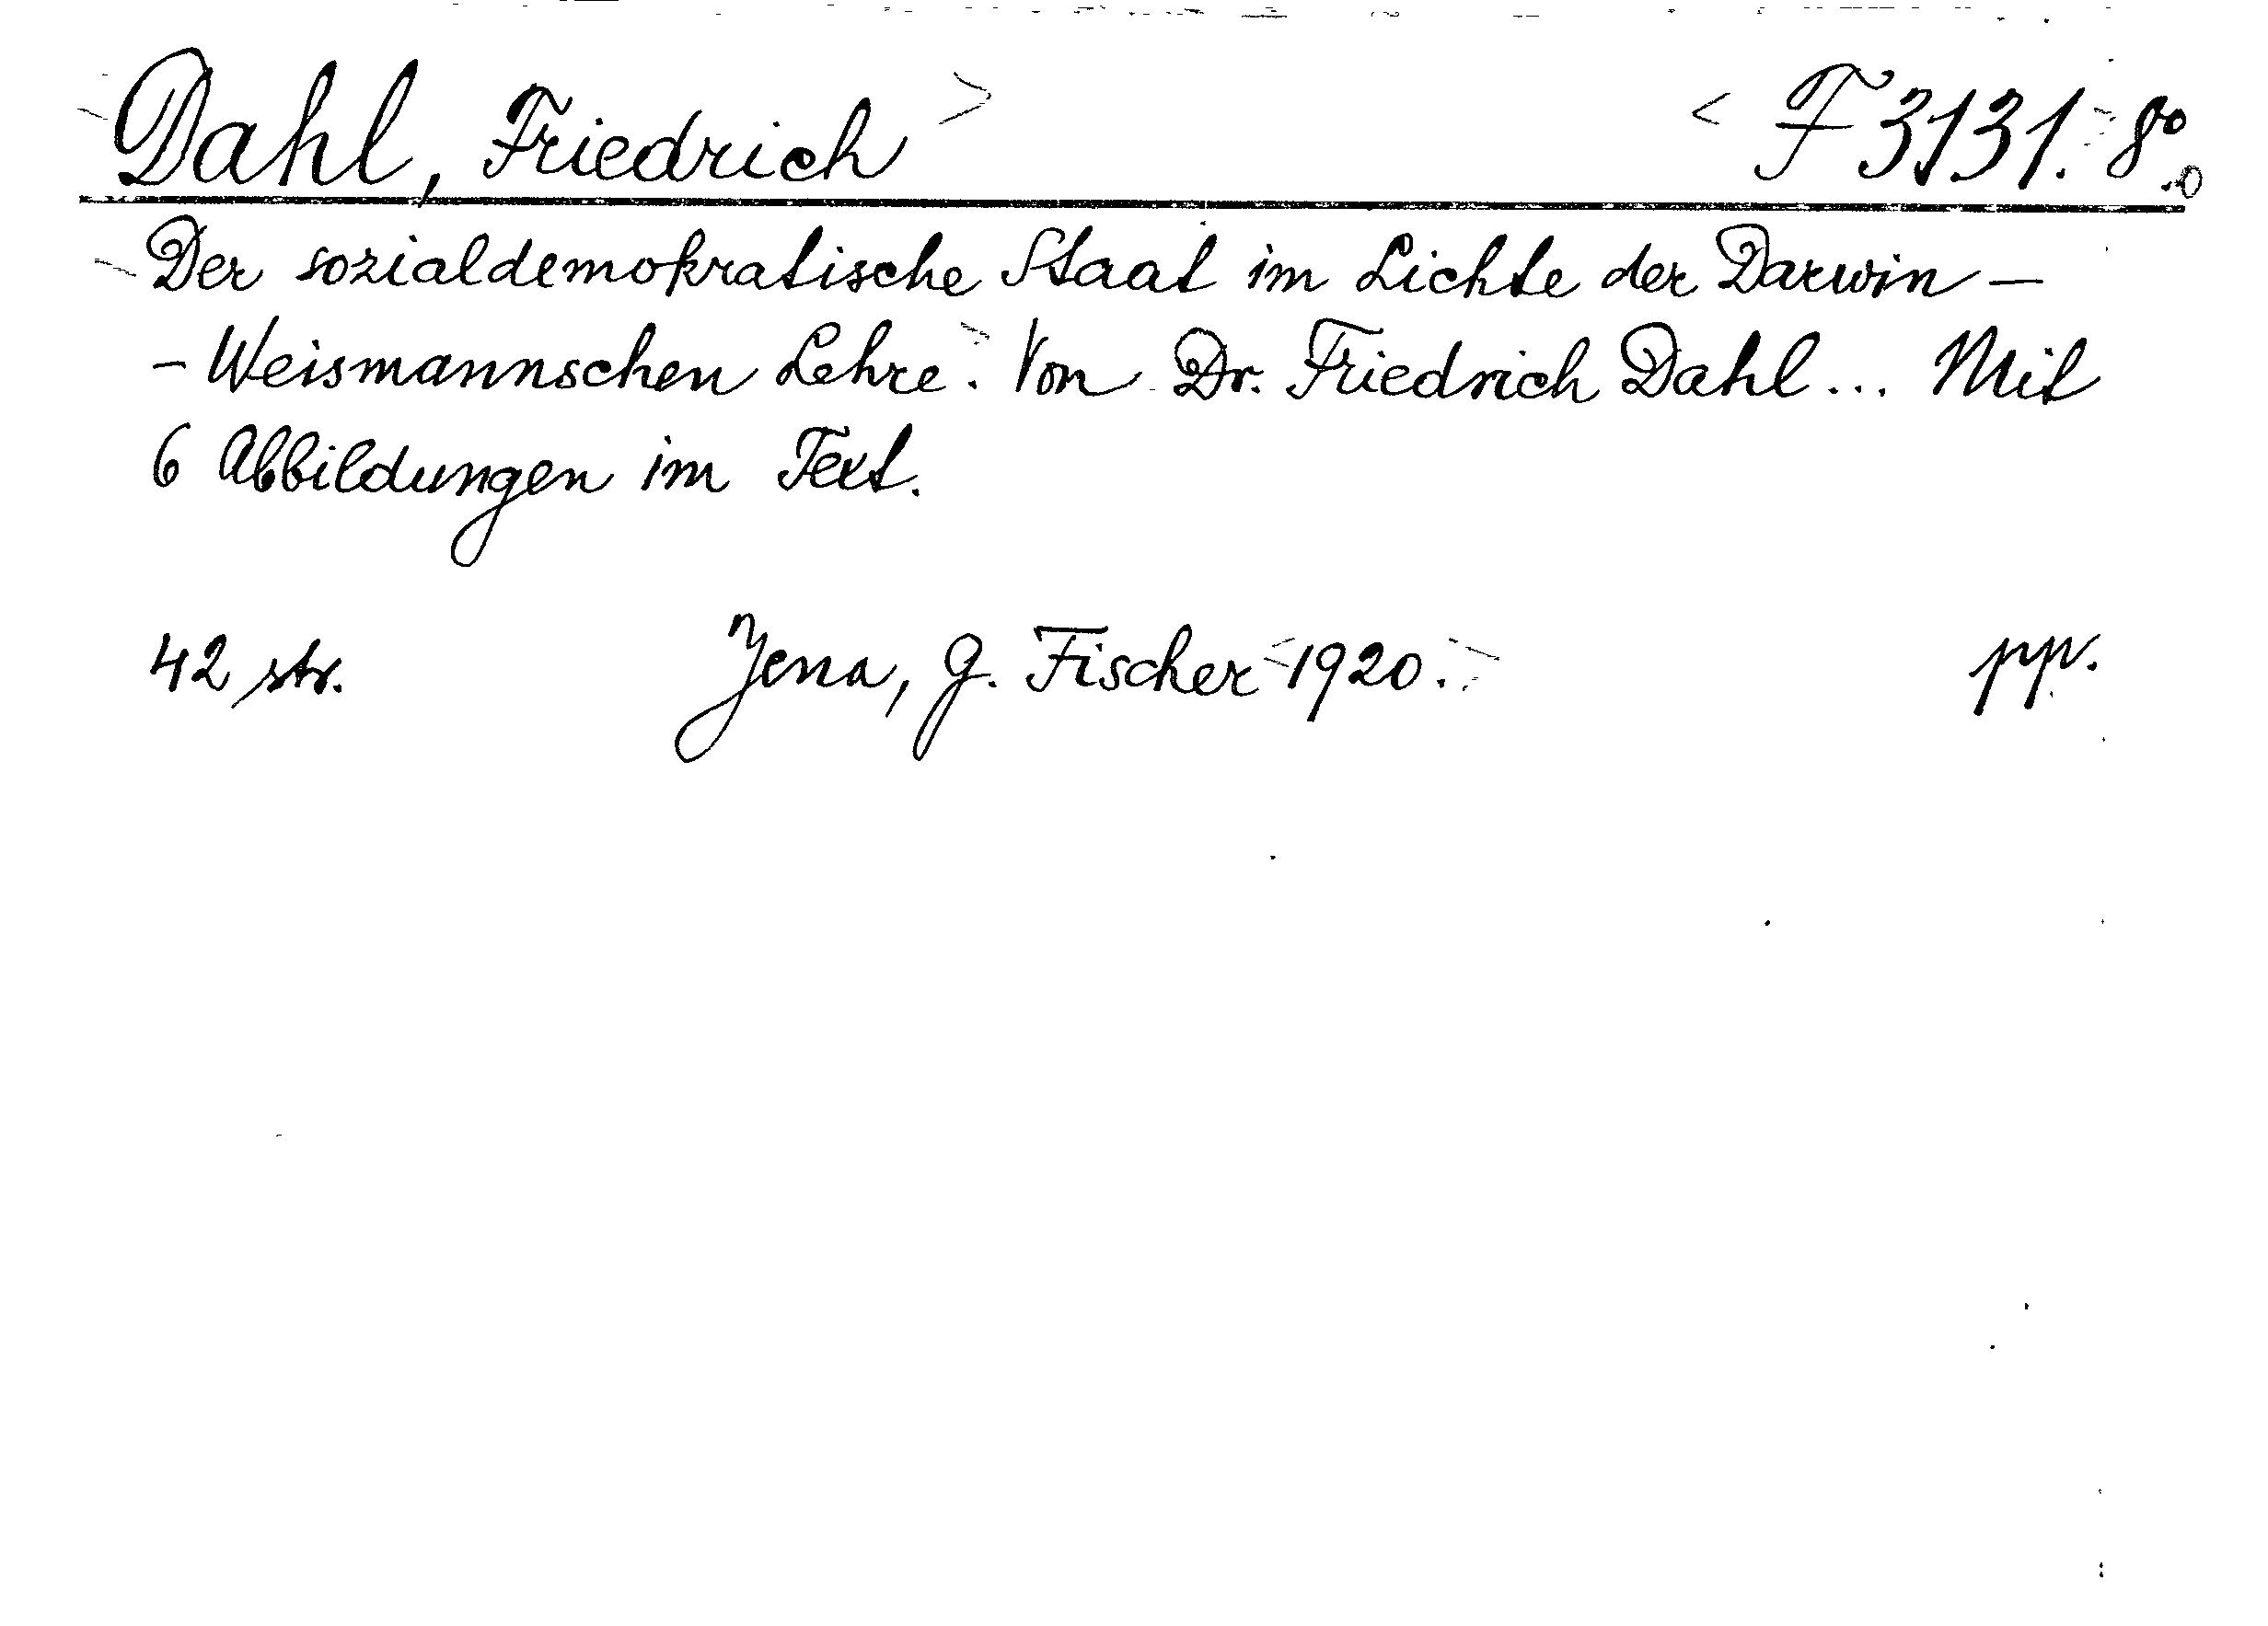 Dahl, Friedrich F 3131. 8°
Der sozialdemokratische Staat im Lichte der Darwin -
- Weismannschen Lehre. Von Dr. Friedrich Dahl... Mit
6 Abbildungen im Text.
42 str. Jena, G. Fischer 1920. pp.